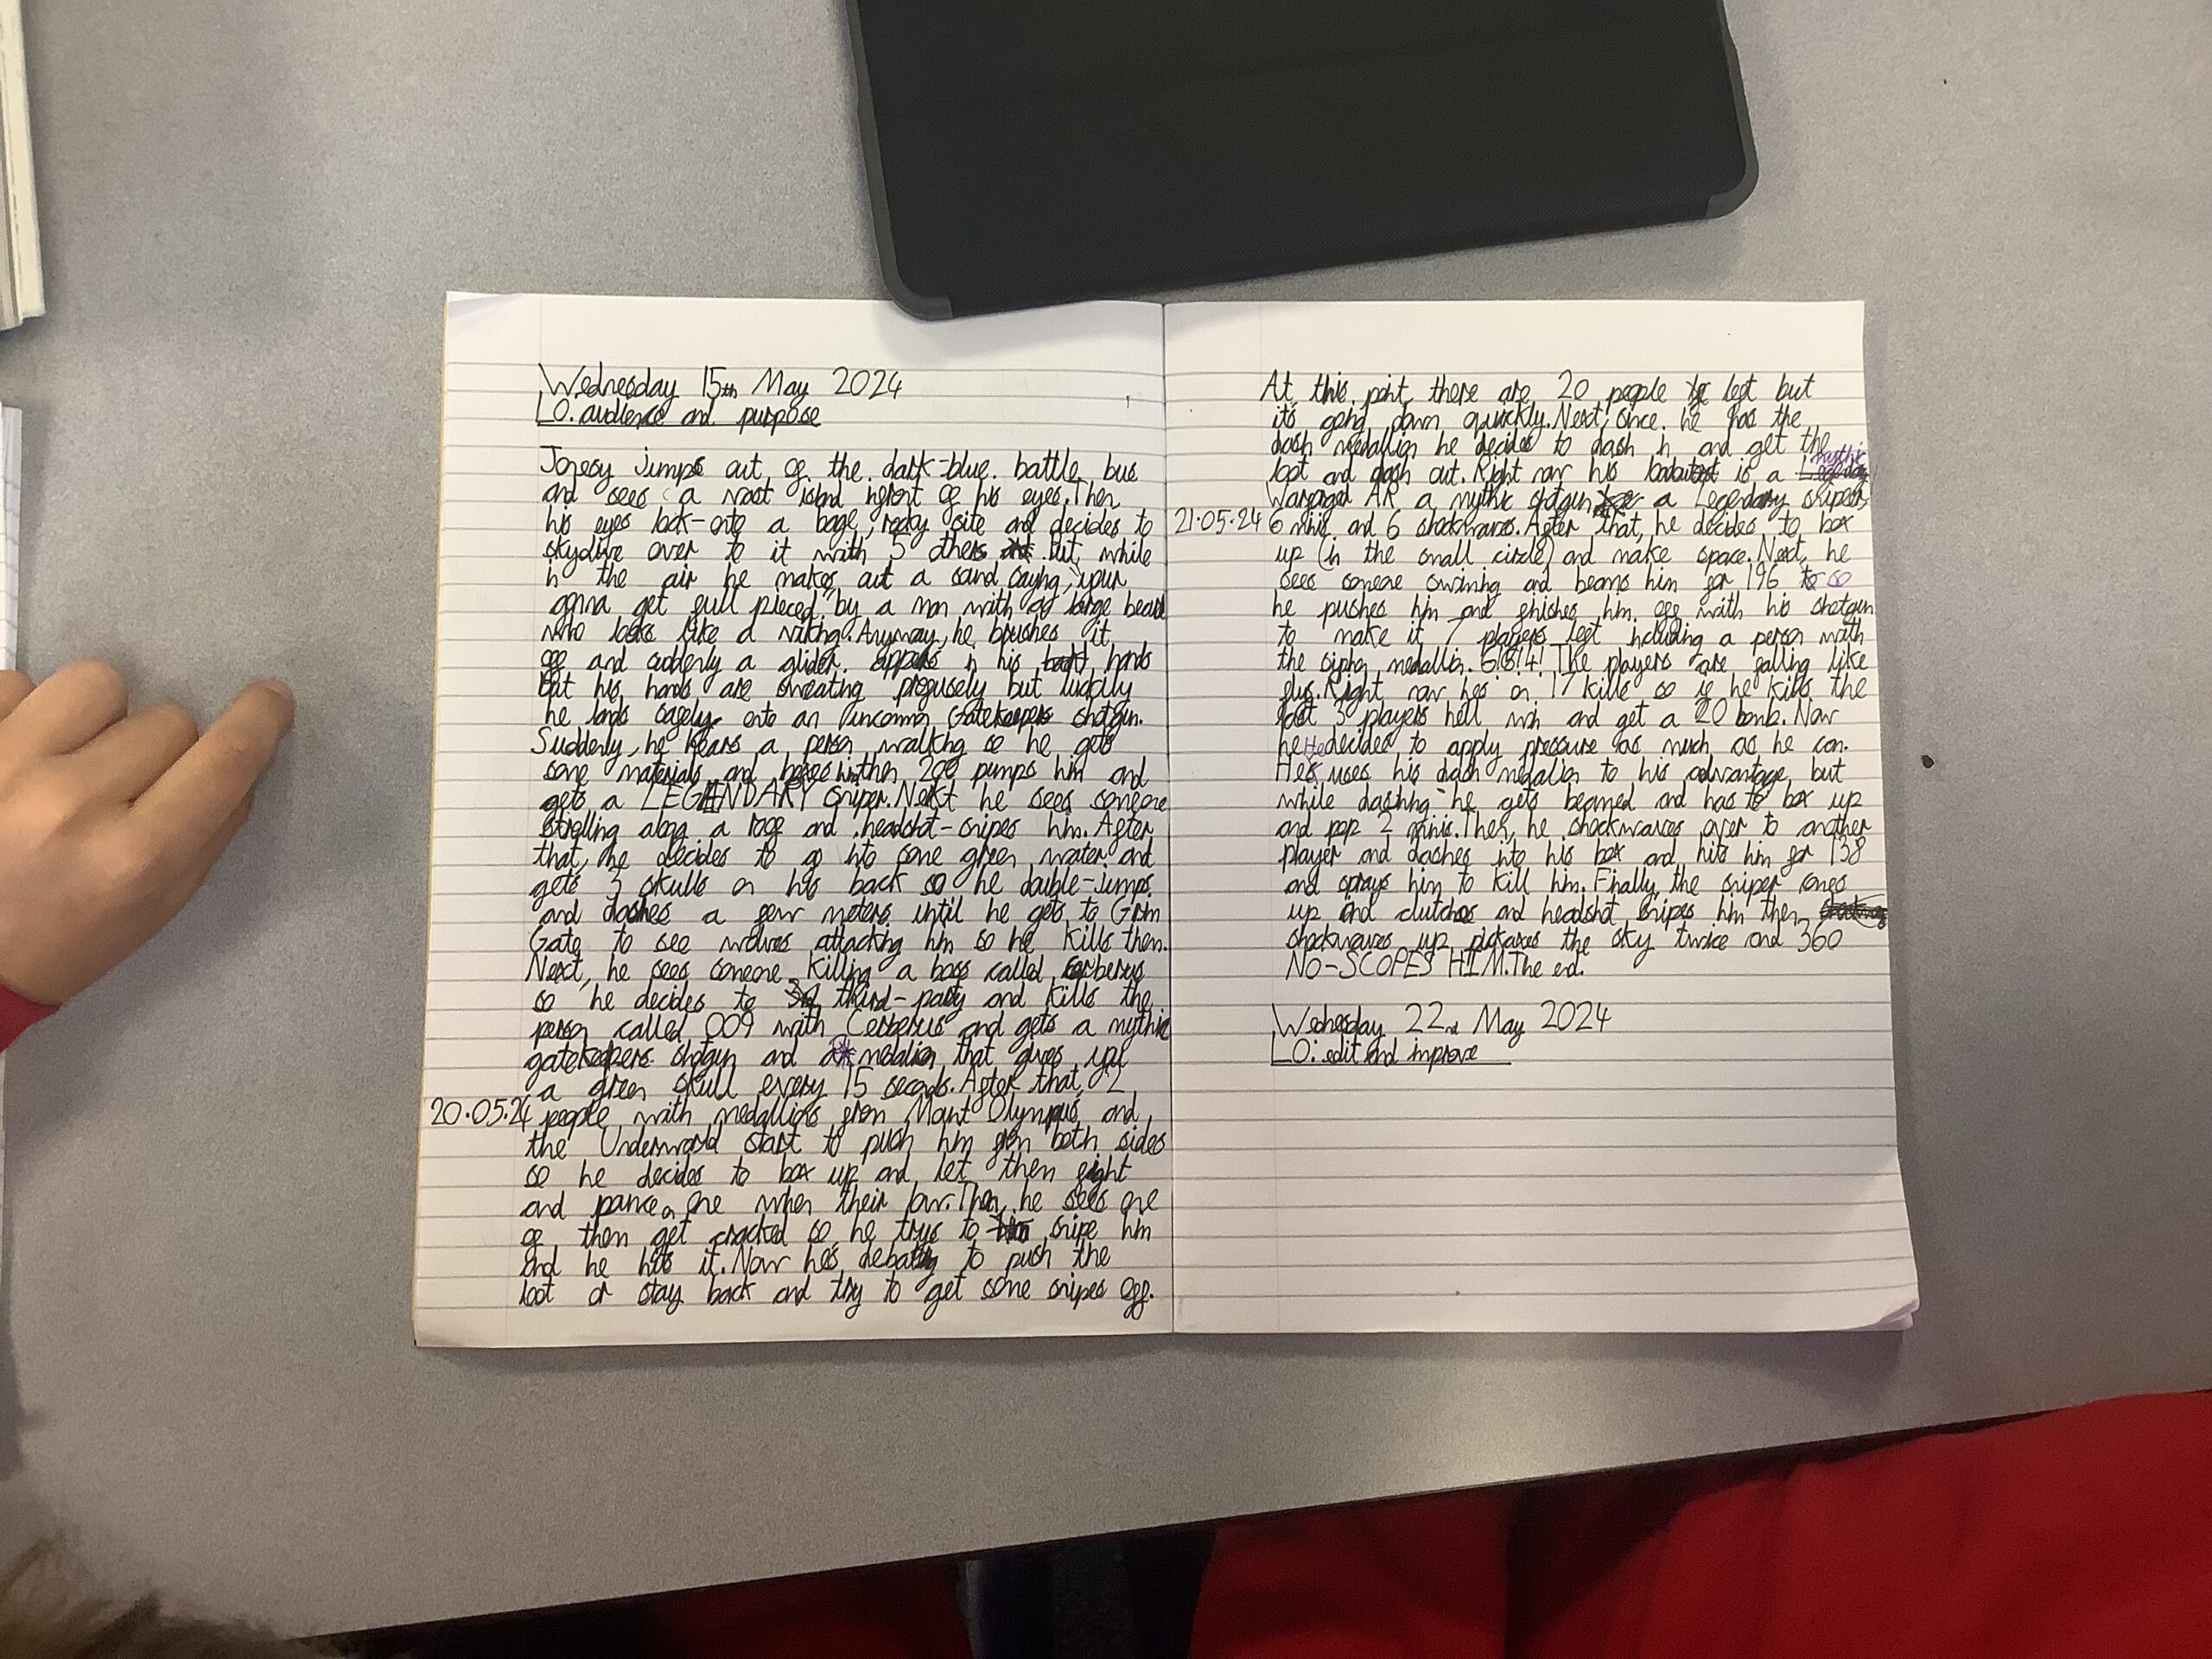 Wednesday 15th May 2024
LO: audience and purpose
Jonesy jumps out of the dark-blue battle bus
and sees a vast island infront of his eyes. Then
his eyes lock-onto a bage, rocky site and decides to
skydive over to it with 5 others but, while
in the air he makes out a sand saying, "your
gonna get full pieced" by a man with large beard
who looks like a viking. Anyway, he brushes it
off and suddenly a glider appears in his hands
but his hands are sweating profusely but luckily
he lands safely onto an uncommon Gatekeepers shotgun.
Suddenly, he hears a person walking so he gets
some materials and boxes him then 200 pumps him and
gets a LEGENDARY sniper. Next he sees someone
strolling along a and headshot-snipes him. After
that, he decides to go into some green water and
gets 3 skulls on his back so he double-jumps
and dashes a few meters until he gets to Grim
Gate to see wolves attacking him so he kills them.
Next, he sees someone killing a boss called cerberus
so he decides to third-party and kills the
person called 009 with Cerberus and gets a mythic
gatekeepers shotgun and a medalion that gives you
a green skull every 15 seconds. After that, 2
20.05.24 people with medallions from Mount Olympus and
the Underworld start to push him from both sides
so he decides to box up and let them fight
and on one when their low. Then, he sees one
of them get cracked so he trys to snipe him
and he hits it. Now he's debating to push the
loot or stay back and try to get some snipes off.
At this point there are 20 people left but
it's going down quickly. Next, since he has the
dash medallion he decides to dash in and get the
loot and dash out. Right now his loadout is a mythic
Warforged AR a mythic shotgun a Legendary sniper
21.05.24 6 minis and 6 shockwaves. After that, he decides to box
up (in the small circle) and make space. Next, he
sees someone swiming and beams him for 196 so
he pushes him and finishes him off with his shotgun
to make it 7 players left including a person with
the siphon medallion. 6!5!4! The players are falling like
flys. Right now hes on 17 kills so if he kills the
last 3 players he'll win and get a 20 bomb. Now
he decides to apply pressure as much as he can.
He uses his dash medalion to his advantage but
while dashing he gets beamed and has to box up
and pop 2 minis. Then, he shockwaves over to another
player and dashes into his box and hits him for 138
and sprays him to kill him. Finally, the sniper comes
up and clutches and headshot snipes him then
shockwaves up, pickaxes the sky twice and 360
NO-SCOPES HIM. The end.
Wednesday 22nd May 2024
LO: edit and improve